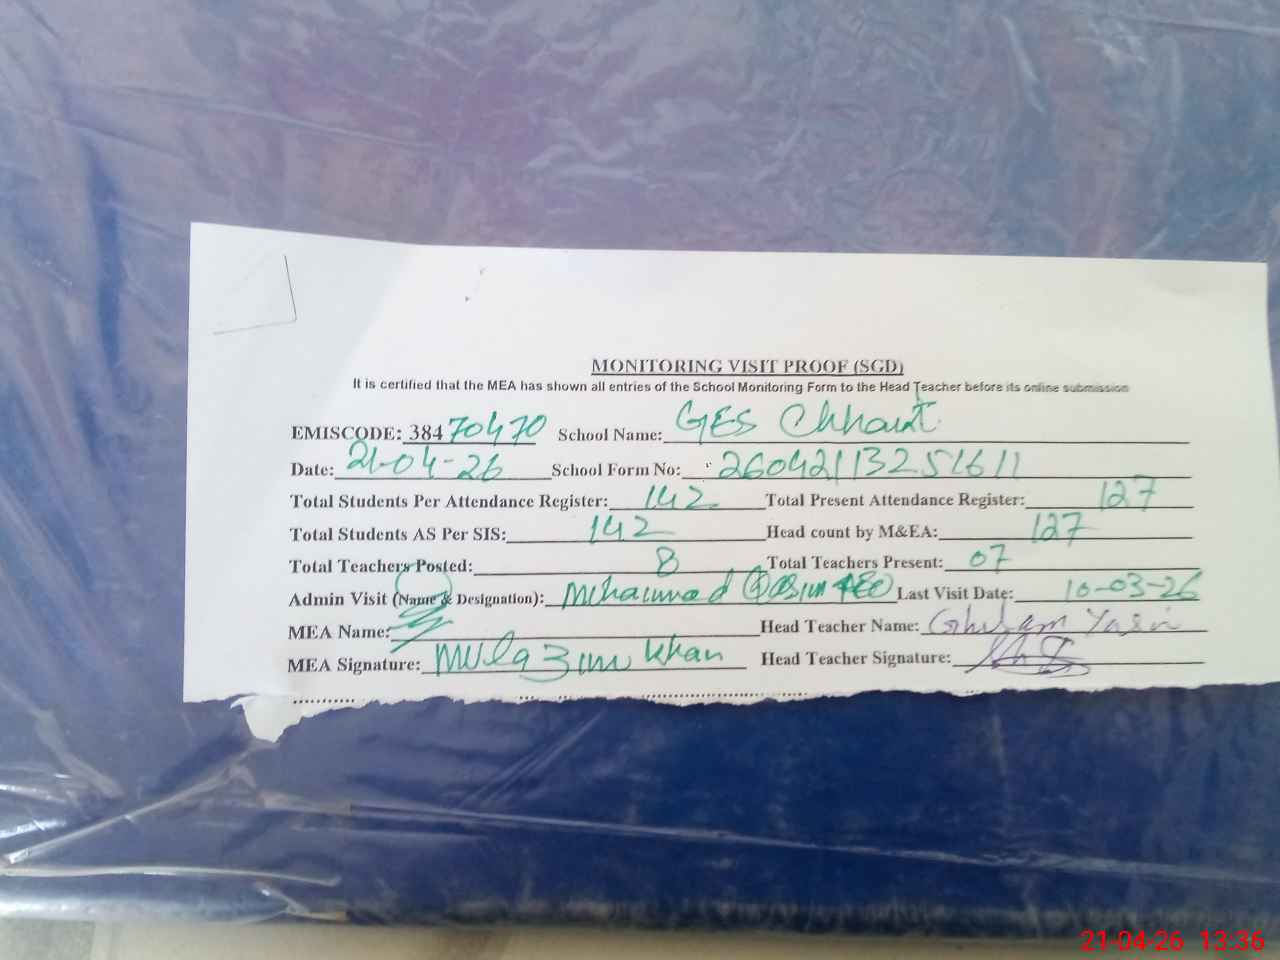 MONITORING VISIT PROOF (SGD)
It is certified that the MEA has shown all entries of the School Monitoring Form to the Head Teacher before its online submission
EMISCODE: 38470470 School Name: GES Chhant
Date: 21-04-26 School Form No: 26042113251611
Total Students Per Attendance Register: 142 Total Present Attendance Register: 127
Total Students AS Per SIS: 142 Head count by M&EA: 127
Total Teachers Posted: 8 Total Teachers Present: 07
Admin Visit (Name & Designation): Muhammad Qasim AEO Last Visit Date: 10-03-26
MEA Name: Head Teacher Name: Ghulam Yasin
MEA Signature: Mulazim Khan Head Teacher Signature:
21-04-26 13:36